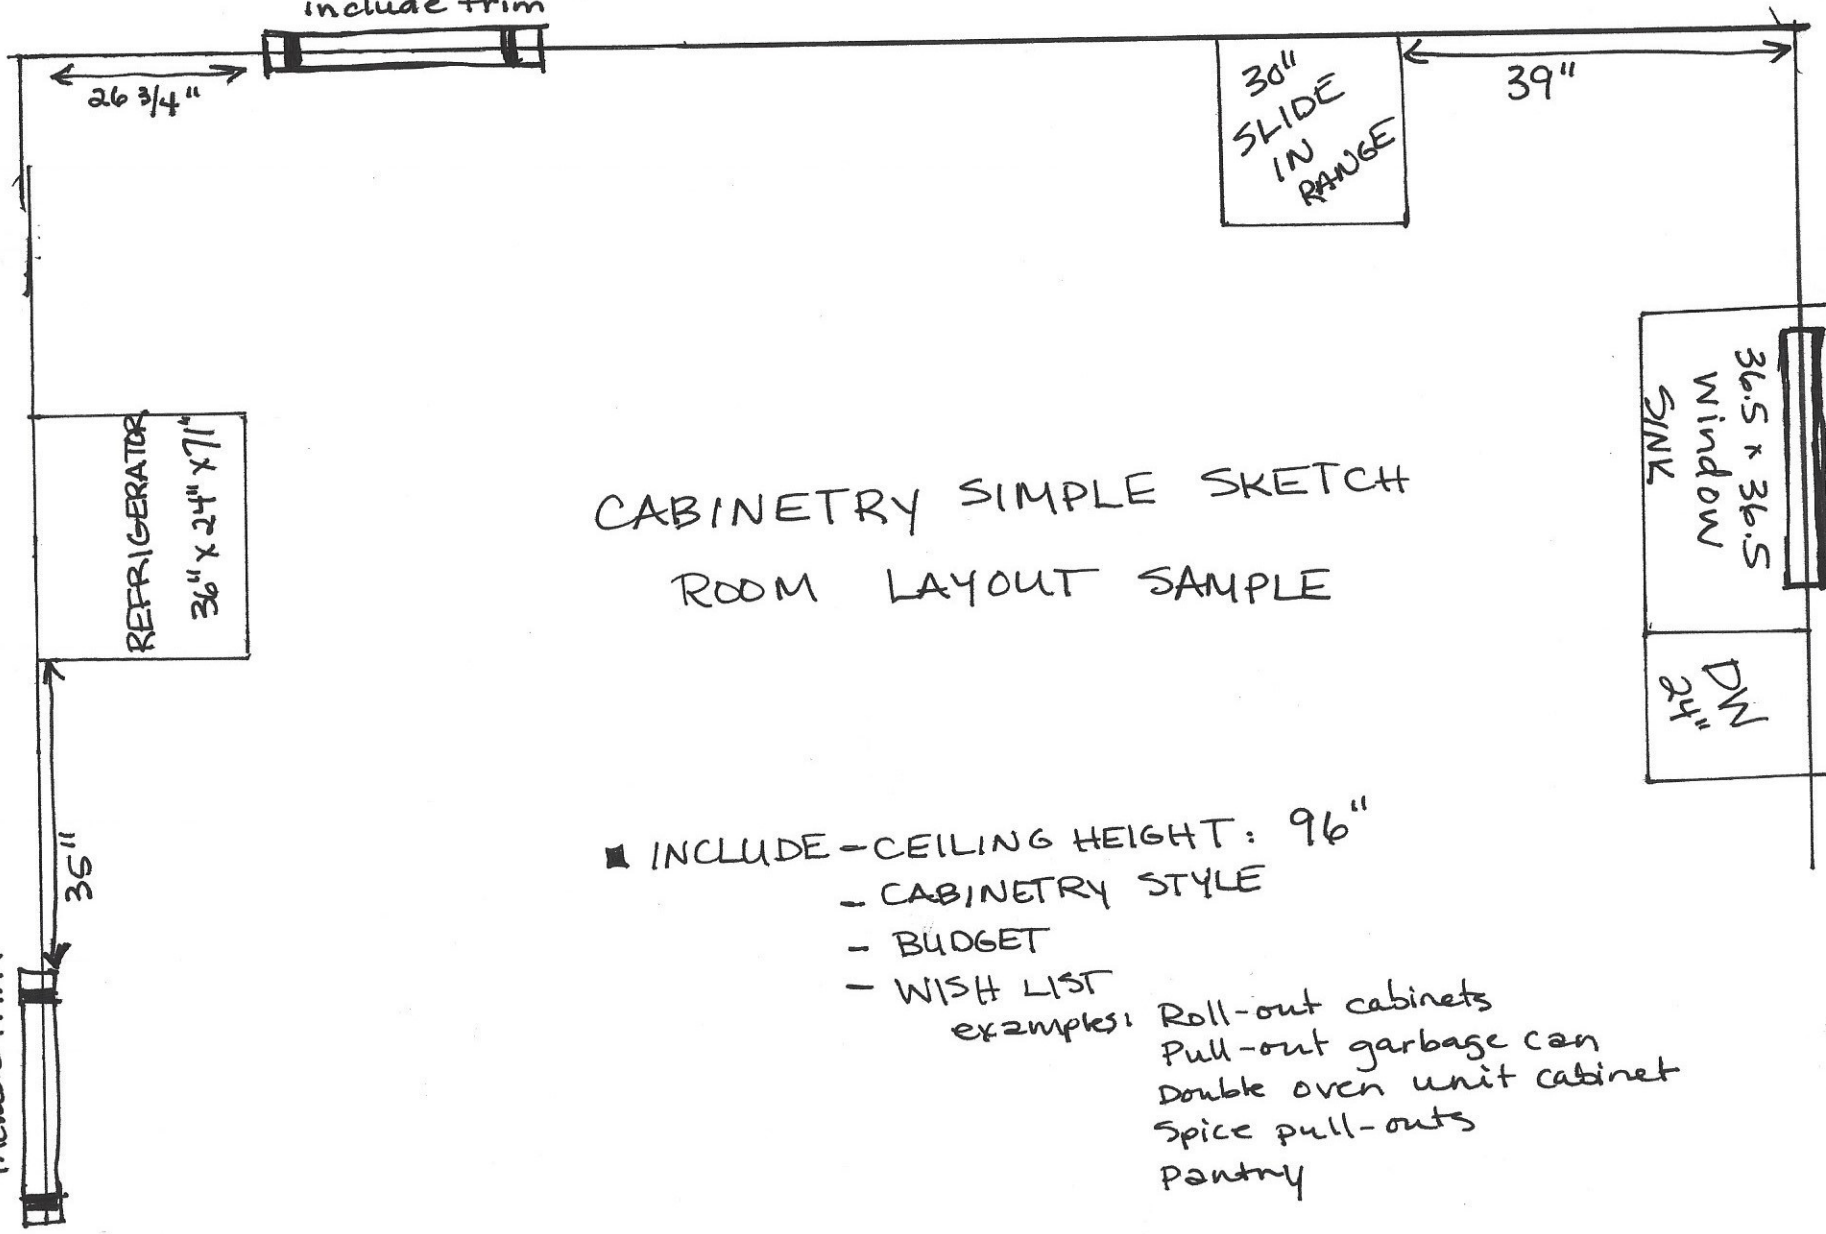 include trim
26 3/4"
30"
SLIDE
IN
RANGE
39"
REFRIGERATOR
36" x 24" x 71"
36.5 x 36.5
Window
SINK
DW
24"
35"
CABINETRY SIMPLE SKETCH
ROOM LAYOUT SAMPLE
■ INCLUDE - CEILING HEIGHT: 96"
- CABINETRY STYLE
- BUDGET
- WISH LIST
examples: Roll-out cabinets
Pull-out garbage can
Double oven unit cabinet
Spice pull-outs
Pantry